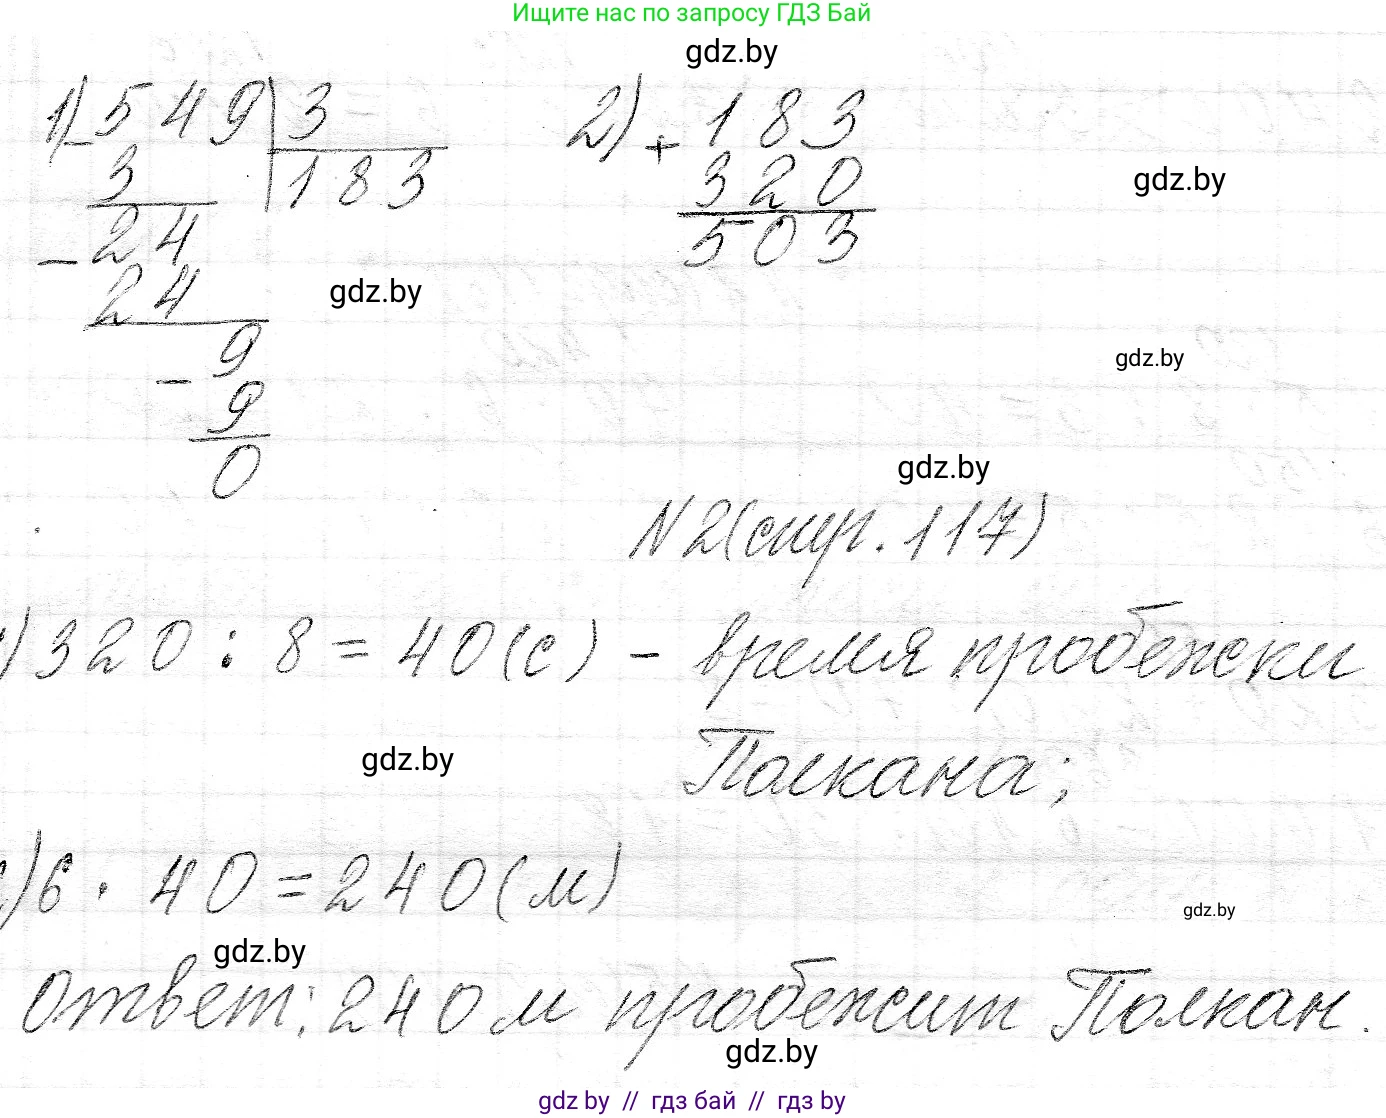 Ищите нас по запросу ГДЗ Бай
gdz.by
1) - 549 | 3
3 | 183
- 24
24
- 9
9
0
2) + 183
320
503
gdz.by
gdz.by
gdz.by
gdz.by
N2(стр. 117)
) 320 : 8 = 40(с) - время пробежки
Полкана;
gdz.by
) 6 · 40 = 240(м)
gdz.by
gdz.by
Ответ: 240 м пробежит Полкан.
gdz.by
gdz by // гдз бай // гдз by